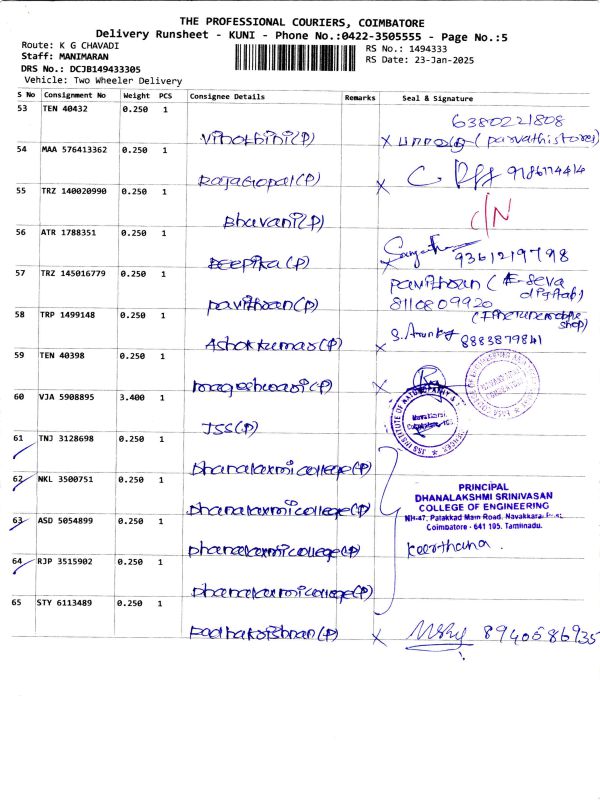 THE PROFESSIONAL COURIERS, COIMBATORE
Delivery Runsheet - KUNI - Phone No.:0422-3505555 - Page No.:5
Route: K G CHAVADI
RS No.: 1494333
Staff: MANIMARAN
RS Date: 23-Jan-2025
DRS No.: DCJB149433305
Vehicle: Two Wheeler Delivery
S No Consignment No Weight PCS Consignee Details Remarks Seal & Signature
53 TEN 40432 0.250 1
6380221808
(P) x (parvathi stores)
54 MAA 576413362 0.250 1
RajaGopal(P) x
55 TRZ 140020990 0.250 1
Bhavani(P) C/N
56 ATR 1788351 0.250 1
Deepika(P) x 9361219798
57 TRZ 145016779 0.250 1
pavithran (E-seva
pavithran(P) 8110809920
58 TRP 1499148 0.250 1
shop)
Ashokkumar(P) x 8883879841
59 TEN 40398 0.250 1
mageshwari(P) x
60 VJA 5908895 3.400 1
JSS(P)
JSS INSTITUTE OF NATUROPATHY &
Navakkarai,
Coimbatore
61 TNJ 3128698 0.250 1
Dhanalaxmi college(P)
62 NKL 3500751 0.250 1
PRINCIPAL
DHANALAKSHMI SRINIVASAN
COLLEGE OF ENGINEERING
NH-47, Palakkad Main Road, Navakkarai
Coimbatore - 641 105. Tamilnadu.
Dhanalaxmi college(P)
63 ASD 5054899 0.250 1
Dhanalaxmi college(P) keerthana.
64 RJP 3515902 0.250 1
Dhanalaxmi college(P)
65 STY 6113489 0.250 1
Radhakrishnan(P) x 8940586935